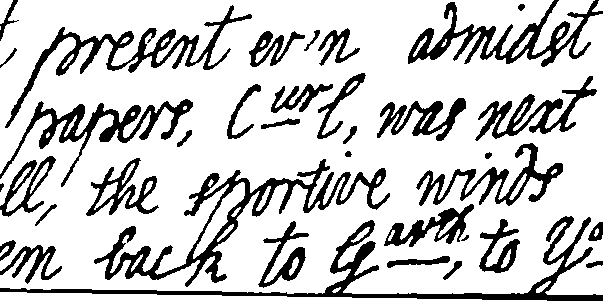 present ev'n admidst
papers, Curl, was next
ll, the sportive winds
em back to Garth, to Yo